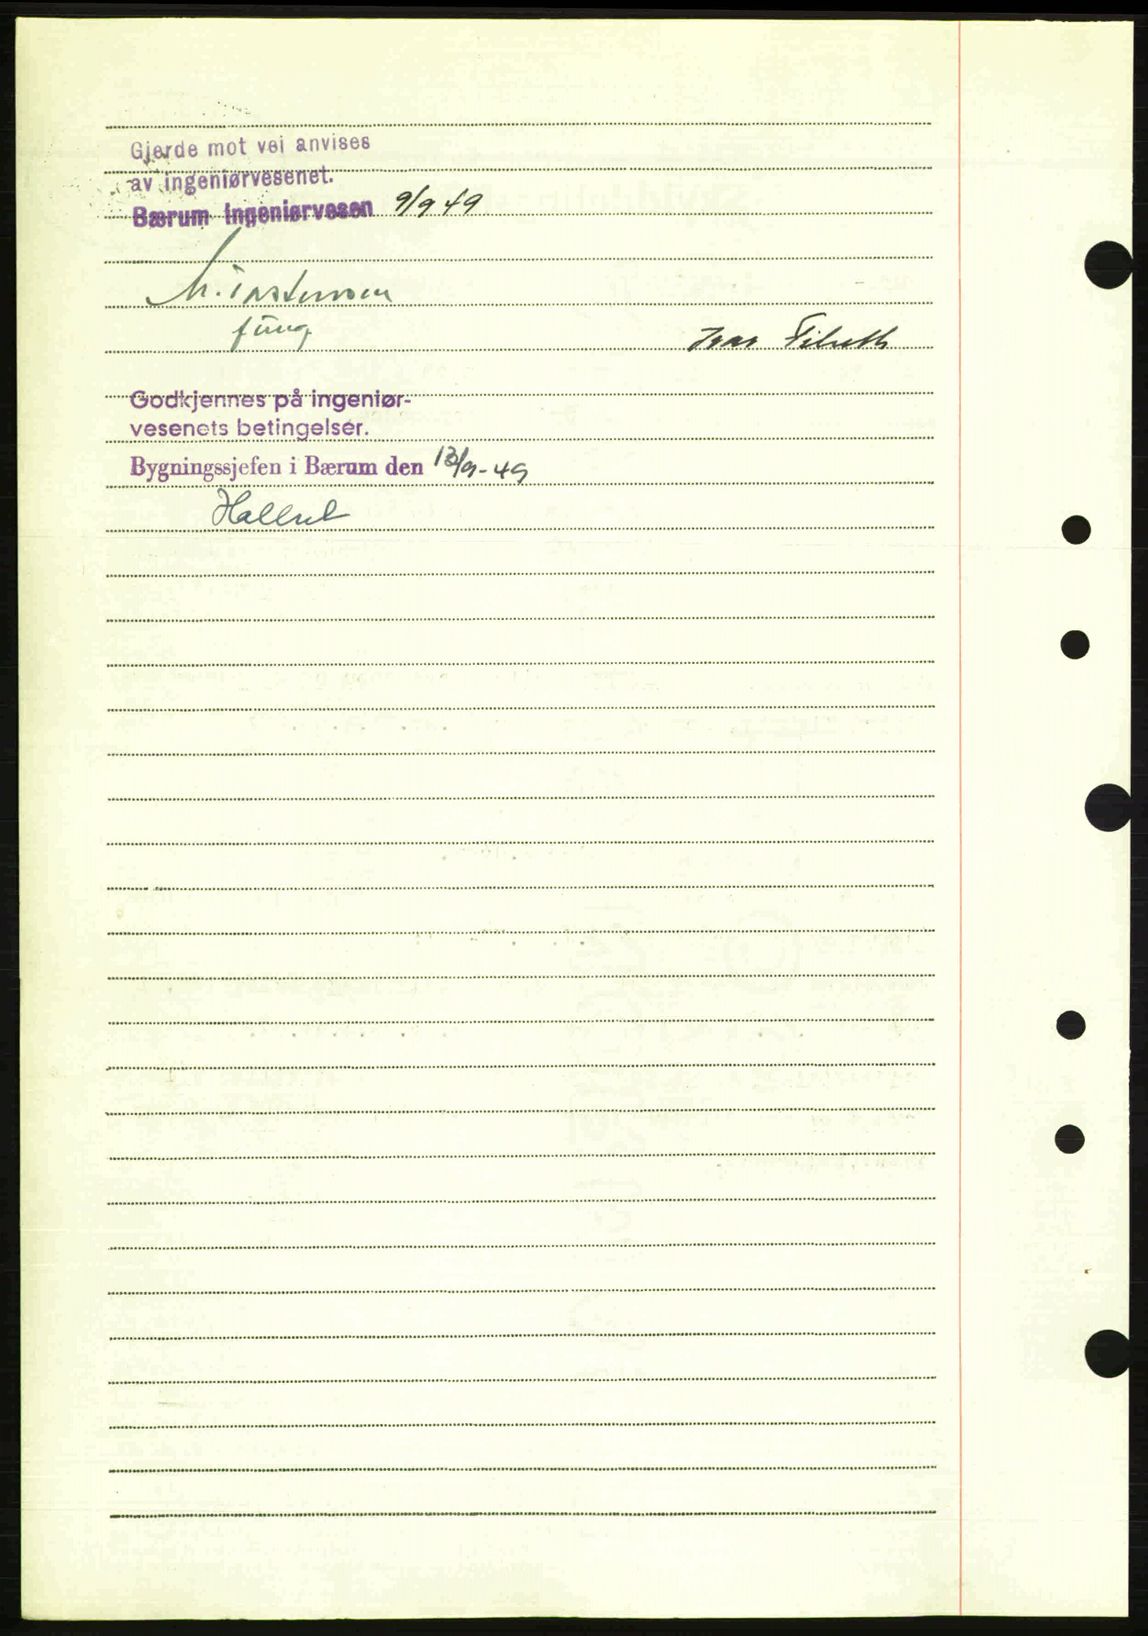 Gjerde mot vei anvises
av ingeniørvesenet.
Bærum Ingeniørvesen 9/9 49
fung.
Ivar
Godkjennes på ingeniør-
vesenets betingelser.
Bygningssjefen i Bærum den 13/9-49